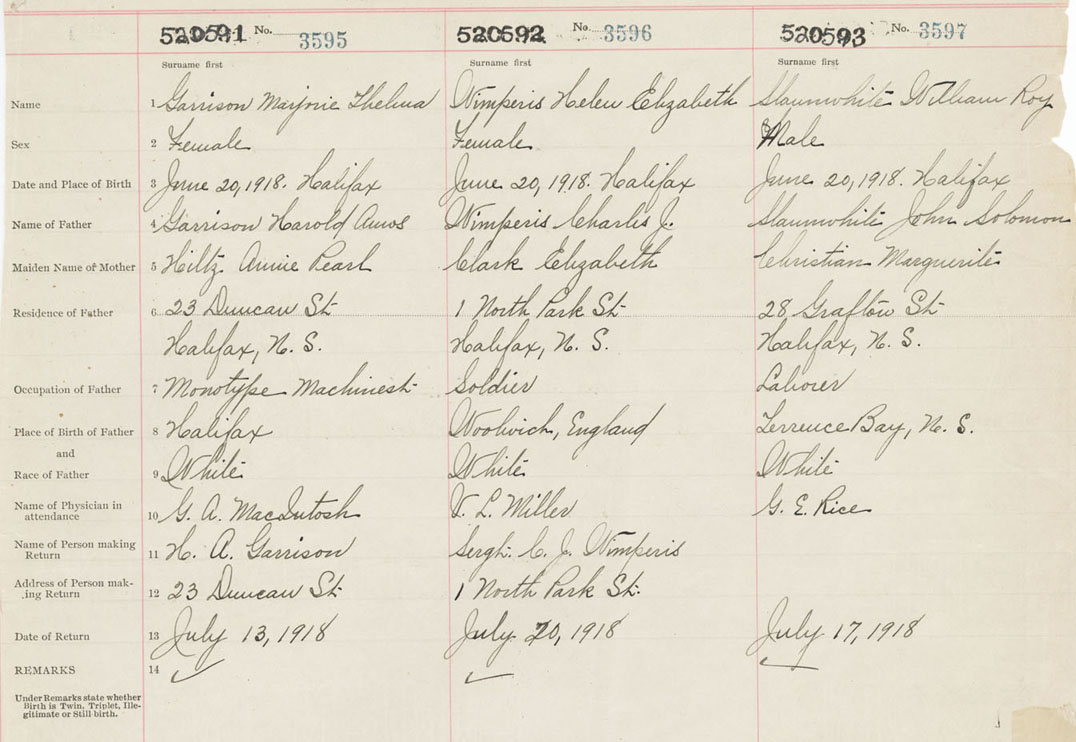 520591 No. 3595 520592 No. 3596 520593 No. 3597
Surname first Surname first Surname first
Name 1 Garrison Marjorie Thelma Wimperis Helen Elizabeth Slaunwhite William Roy
Sex 2 Female Female Male
Date and Place of Birth 3 June 20, 1918. Halifax June 20, 1918. Halifax June 20, 1918. Halifax
Name of Father 4 Garrison Harold Amos Wimperis Charles J. Slaunwhite John Solomon
Maiden Name of Mother 5 Hiltz Annie Pearl Clark Elizabeth Christian Marguerite
Residence of Father 6 23 Duncan St. 1 North Park St. 28 Grafton St.
Halifax, N. S. Halifax, N. S. Halifax, N. S.
Occupation of Father 7 Monotype Machinest Soldier Laborer
Place of Birth of Father 8 Halifax Woolwich, England Terrence Bay, N. S.
and
Race of Father 9 White White White
Name of Physician in
attendance 10 G. A. MacIntosh V. L. Miller G. E. Rice
Name of Person making
Return 11 H. A. Garrison Sergt. C. J. Wimperis
Address of Person mak-
ing Return 12 23 Duncan St. 1 North Park St.
Date of Return 13 July 13, 1918 July 20, 1918 July 17, 1918
REMARKS 14
Under Remarks state whether
Birth is Twin, Triplet, Ille-
gitimate or Still birth.